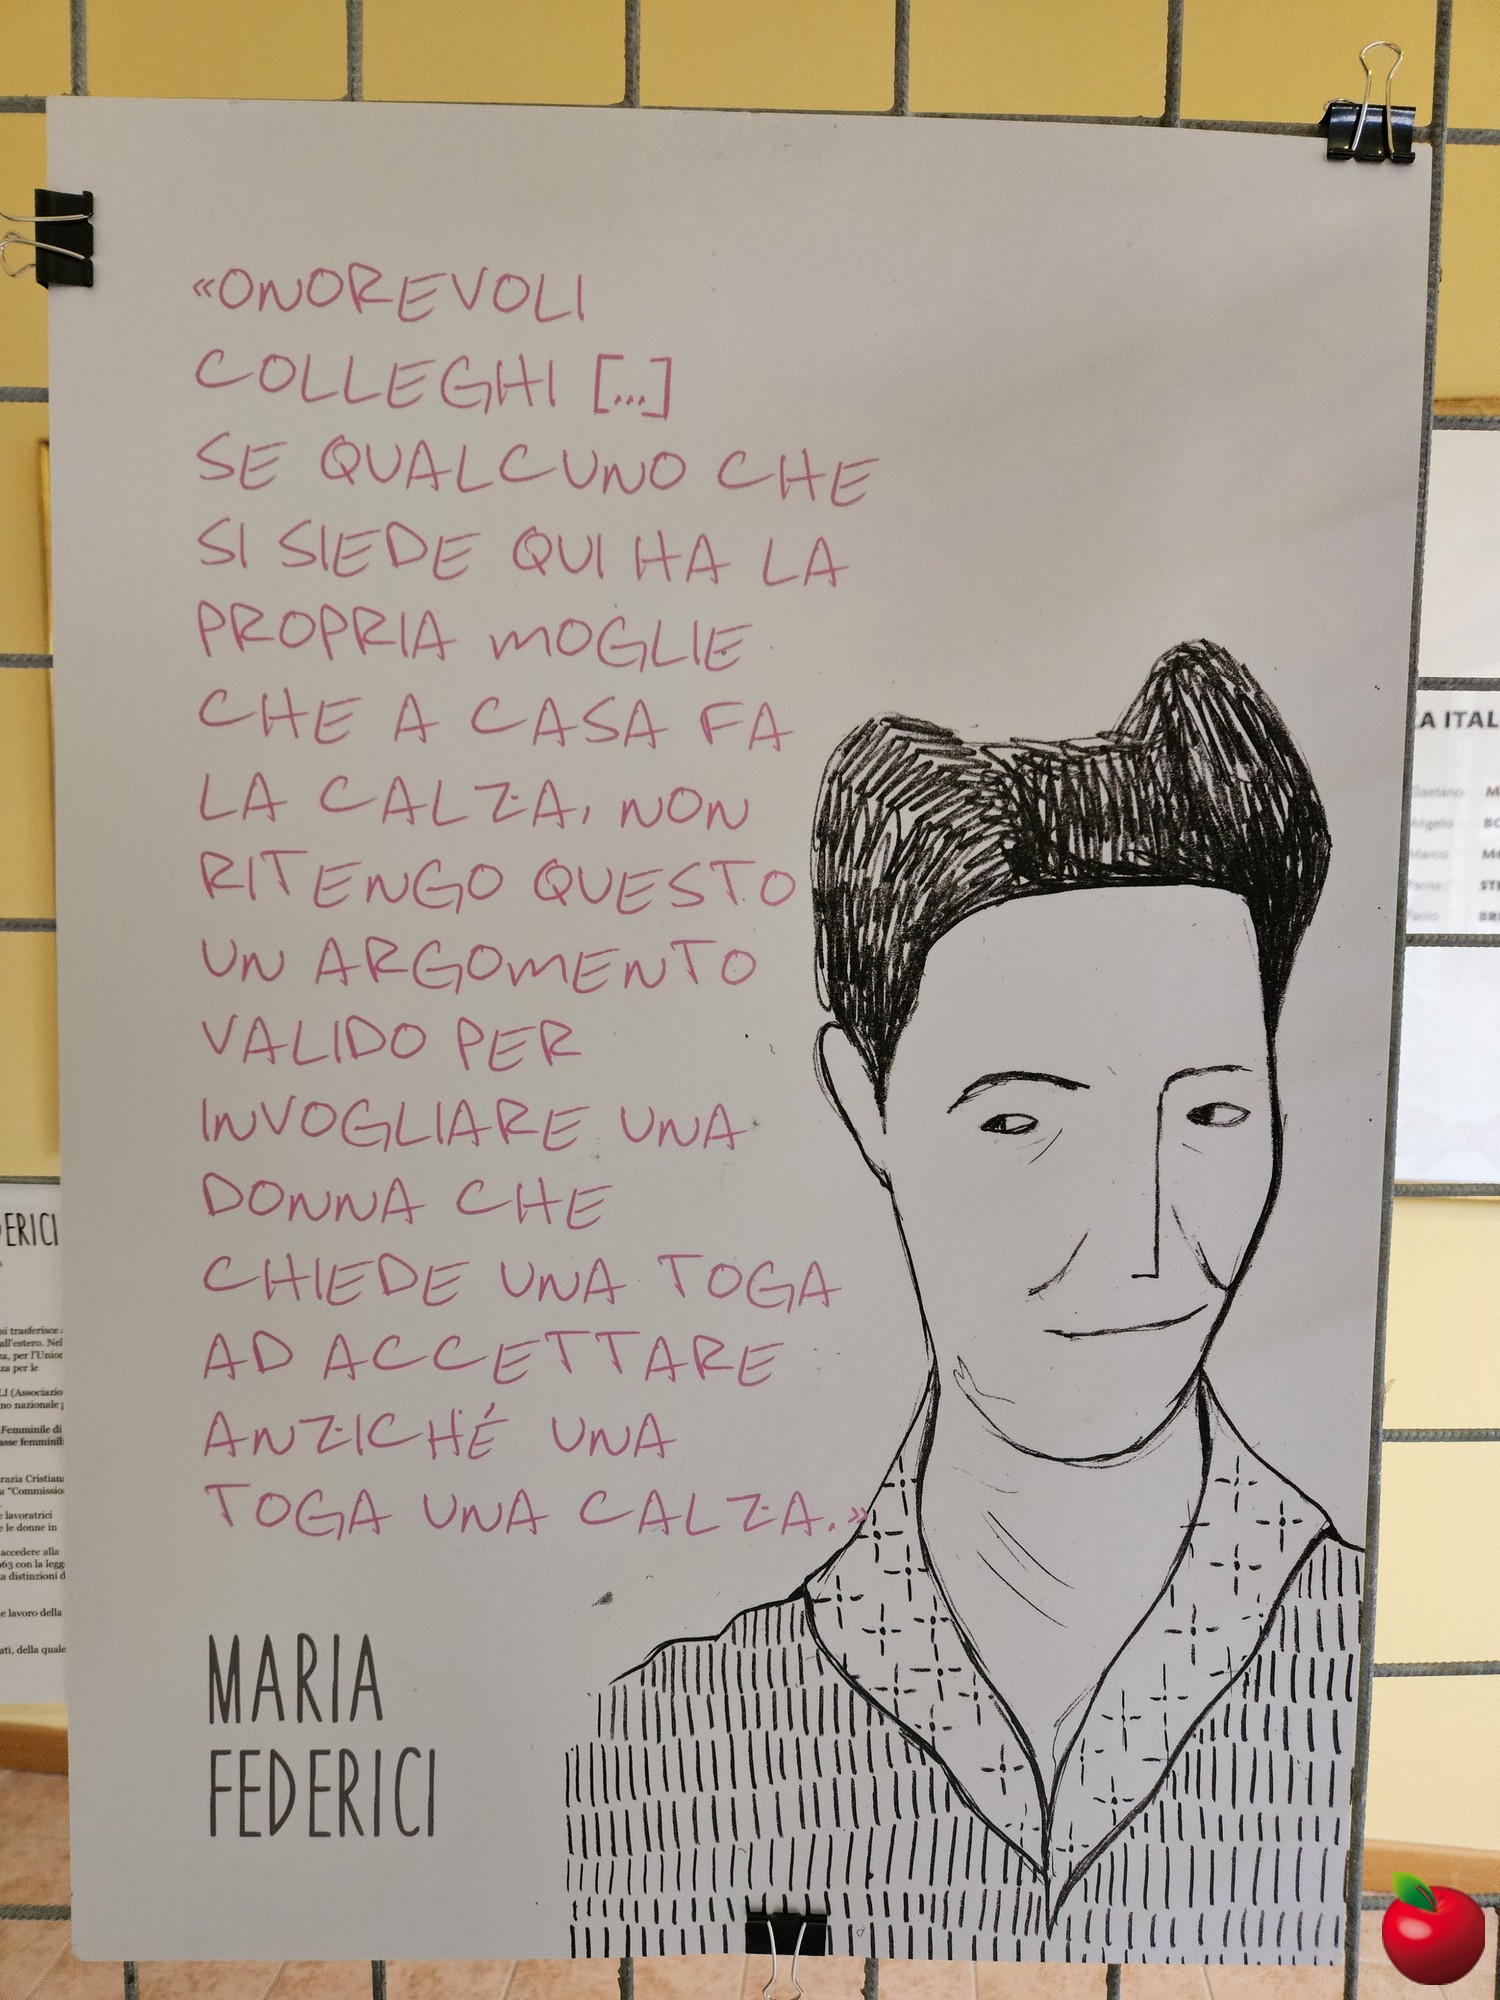 «ONOREVOLI
COLLEGHI [...]
SE QUALCUNO CHE
SI SIEDE QUI HA LA
PROPRIA MOGLIE
CHE A CASA FA
LA CALZA, NON
RITENGO QUESTO
UN ARGOMENTO
VALIDO PER
INVOGLIARE UNA
DONNA CHE
CHIEDE UNA TOGA
AD ACCETTARE
ANZICHÉ UNA
TOGA UNA CALZA.»
MARIA
FEDERICI
ERICI
si trasferisce
all'estero. Nel
za, per l'Union
za per le
LI (Associazio
no nazionale
Femminile di
asse femminil
razia Cristian
a "Commissio
e lavoratrici
e le donne in
accedere alla
963 con la legg
a distinzioni d
e lavoro della
ati, della quale
A ITAL
Gaetano M
Angelo BO
Marco M
Paolo STE
Paolo BRI